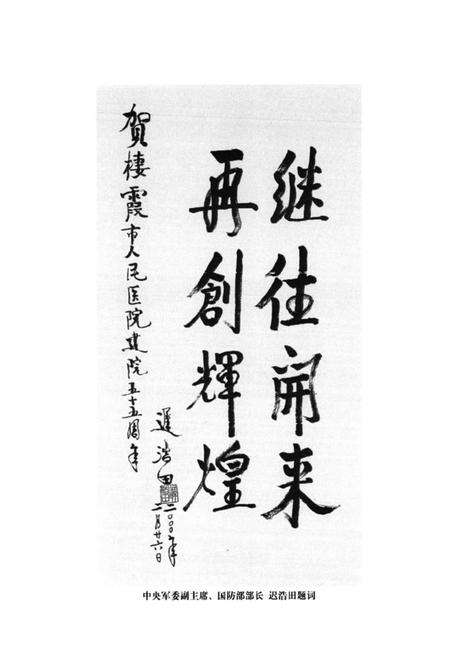 继往开来
再創輝煌
賀棲霞市人民医院建院五十五周年
遲浩田
二〇〇〇年
二月廿六日
中央军委副主席、国防部部长 迟浩田题词